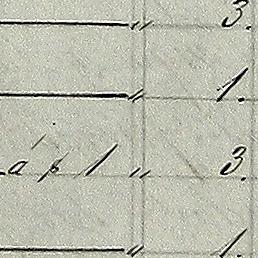 " 3.
" 1.
á p 1 " 3.
" 1.